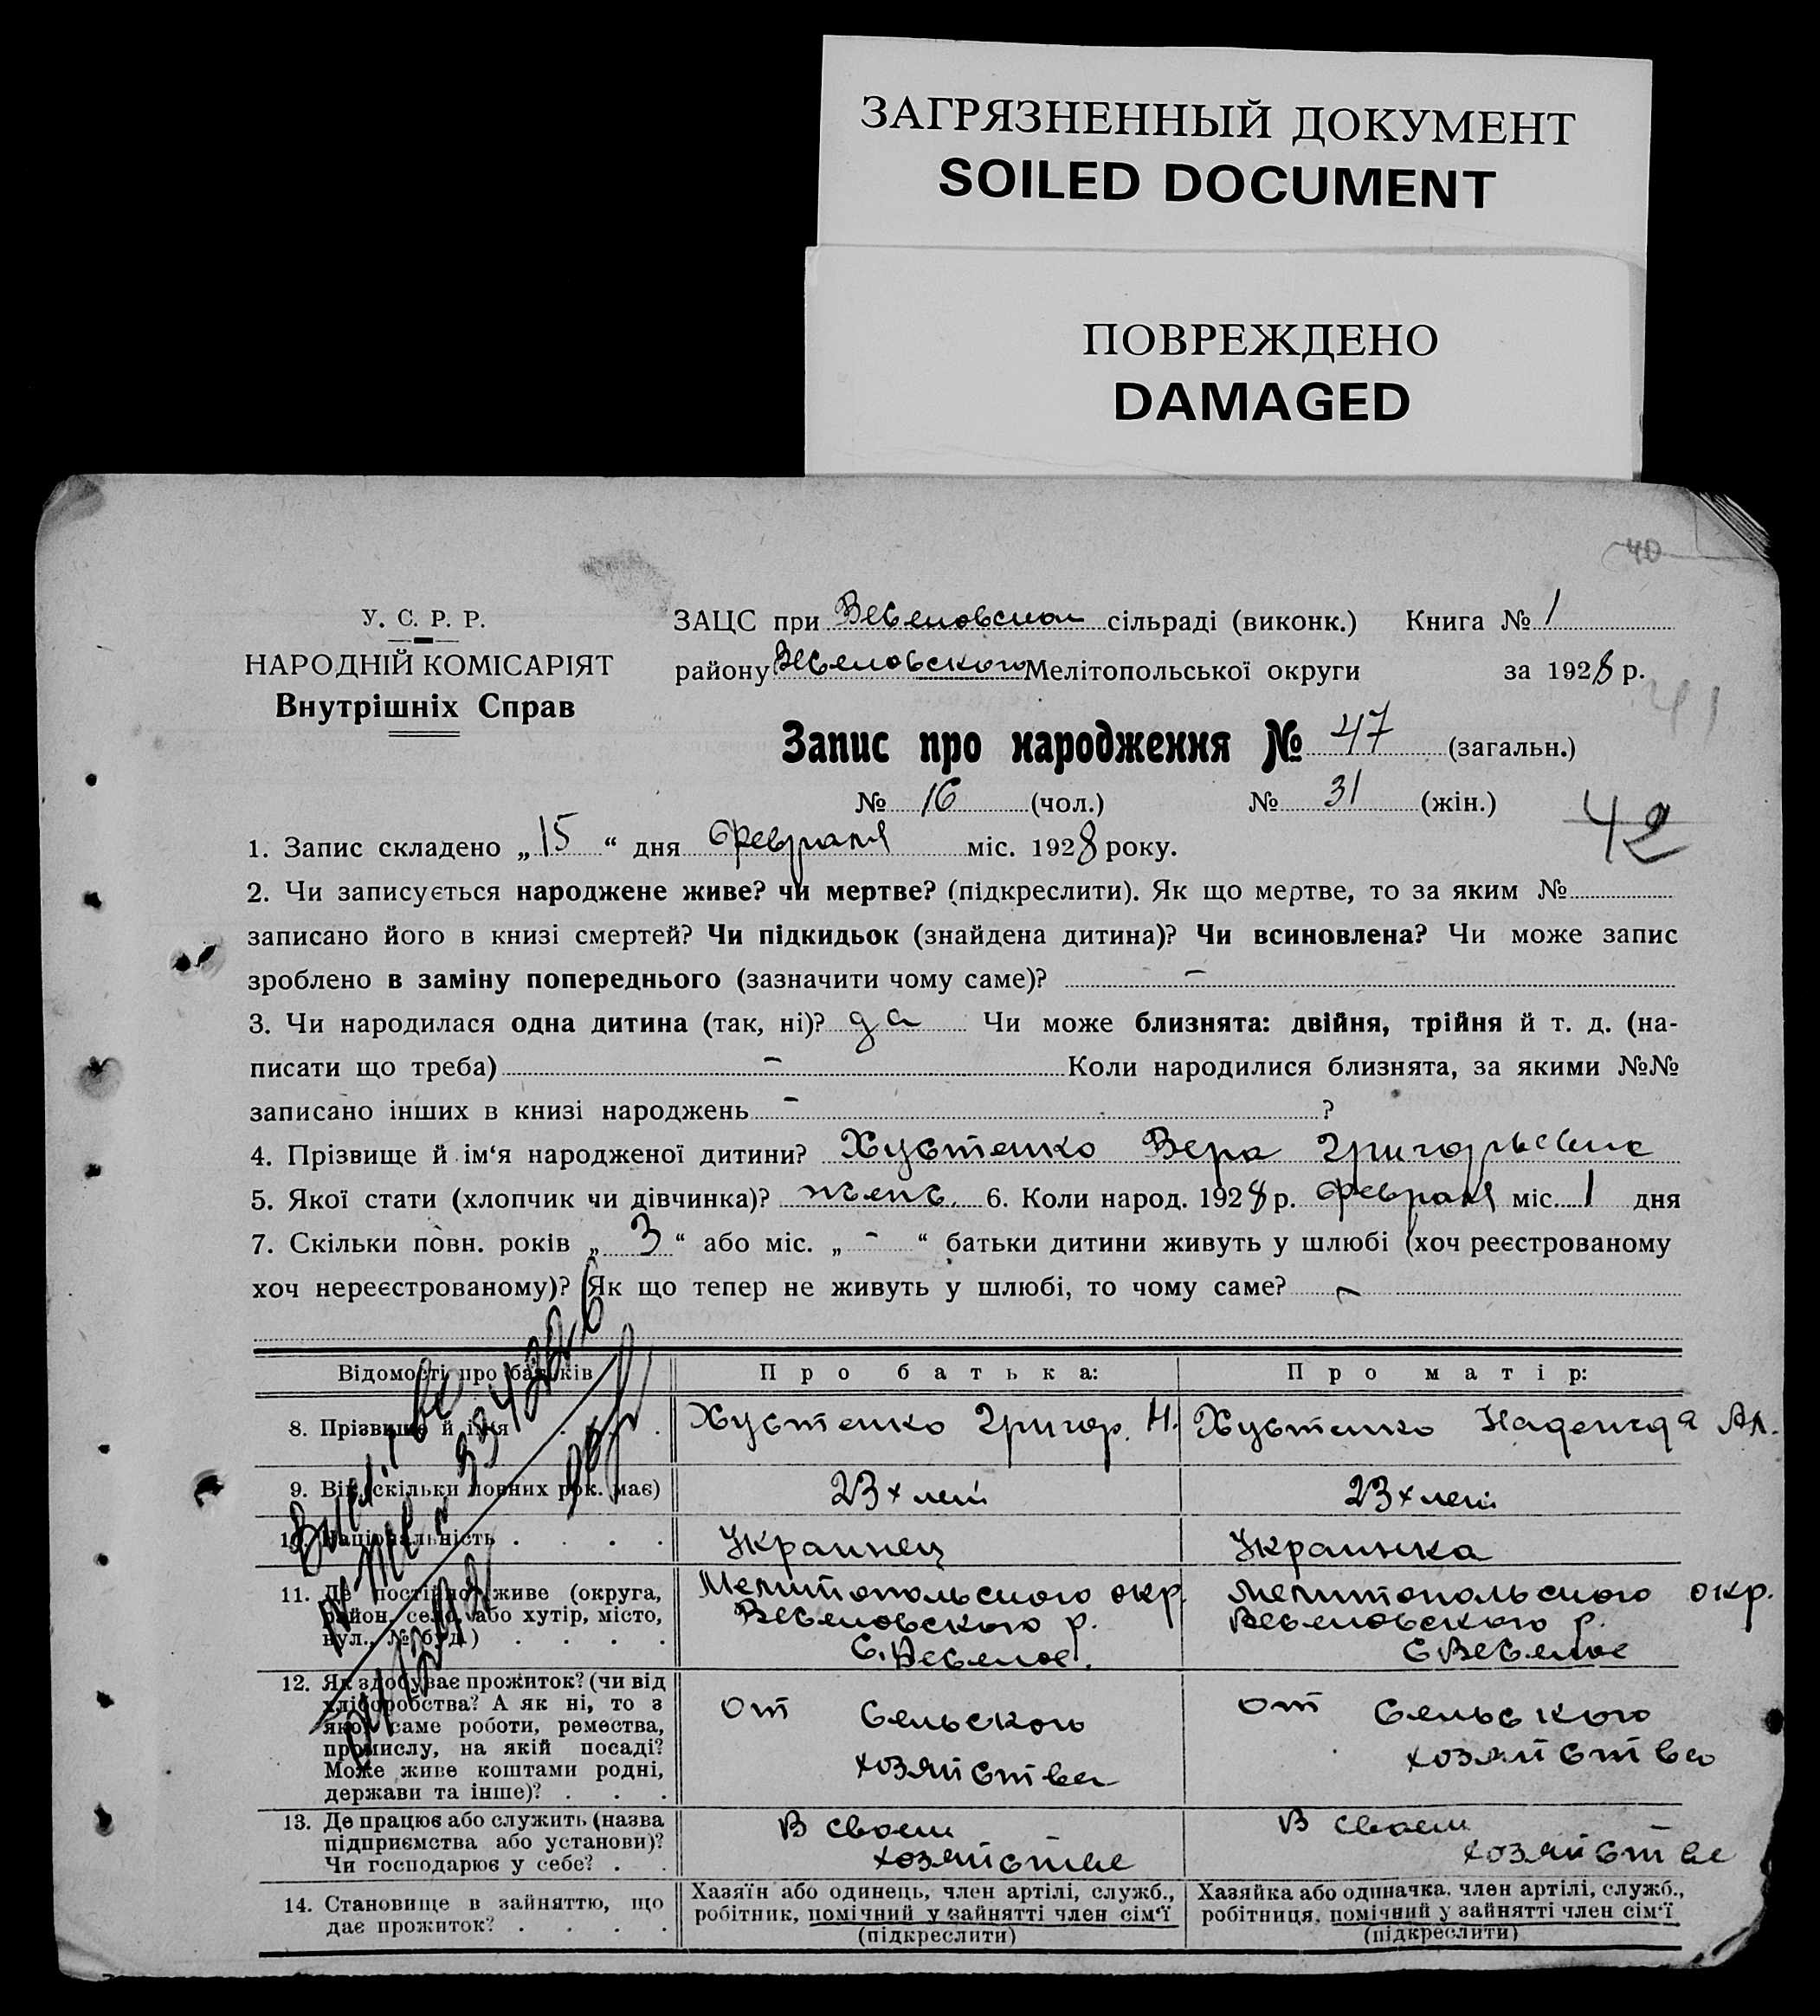 ЗАГРЯЗНЕННЫЙ ДОКУМЕНТ
SOILED DOCUMENT
ПОВРЕЖДЕНО
DAMAGED
40
У. С. Р. Р.
НАРОДНІЙ КОМІСАРІЯТ
Внутрішніх Справ
ЗАЦС при Веселовском сільраді (виконк.) Книга № 1
району Веселовского Мелітопольської округи за 1928 р.
41
Запис про народження № 47 (загальн.)
№ 16 (чол.) № 31 (жін.)
42
1. Запис складено „15“ дня февраля міс. 1928 року.
2. Чи записується народжене живе? чи мертве? (підкреслити). Як що мертве, то за яким №
записано його в книзі смертей? Чи підкидьок (знайдена дитина)? Чи всиновлена? Чи може запис
зроблено в заміну попереднього (зазначити чому саме)? –
3. Чи народилася одна дитина (так, ні)? да Чи може близнята: двійня, трійня й т. д. (на-
писати що треба) – Коли народилися близнята, за якими №№
записано інших в книзі народжень – ?
4. Прізвище й ім‘я народженої дитини? Хустенко Вера Григорьевна
5. Якої стати (хлопчик чи дівчинка)? женс. 6. Коли народ. 1928 р. февраля міс. 1 дня
7. Скільки повн. років „3“ або міс. „-“ батьки дитини живуть у шлюбі (хоч реєстрованому
хоч нереєстрованому)? Як що тепер не живуть у шлюбі, то чому саме? –
Відомості про батьків Про батька: Про матір:
8. Прізвище й ім‘я Хустенко Григор. Н. Хустенко Надежда Ал.
9. Вік (скільки повних рок. має) 23х лет 23х лет
10. Національність Украинец Украинка
11. Де постійно живе (округа,
район, село, або хутір, місто,
вул., № буд.)
Мелитопольского окр.
Веселовского р.
С. Веселое.
Мелитопольского окр.
Веселовского р.
С Веселое
12. Як здобуває прожиток? (чи від
хліборобства? А як ні, то з
якої саме роботи, ремества,
промислу, на якій посаді?
Може живе коштами родні,
держави та інше)?
От Сельского
хозяйства
От Сельского
хозяйства
13. Де працює або служить (назва
підприємства або установи)?
Чи господарює у себе?
В своем
хозяйстве
В своем
хозяйстве
14. Становище в зайняттю, що
дає прожиток?
Хазяїн або одинець, член артілі, служб.,
робітник, помічний у зайнятті член сім‘ї
(підкреслити)
Хазяйка або одиначка, член артілі, служб.,
робітниця, помічний у зайнятті член сім‘ї
(підкреслити)